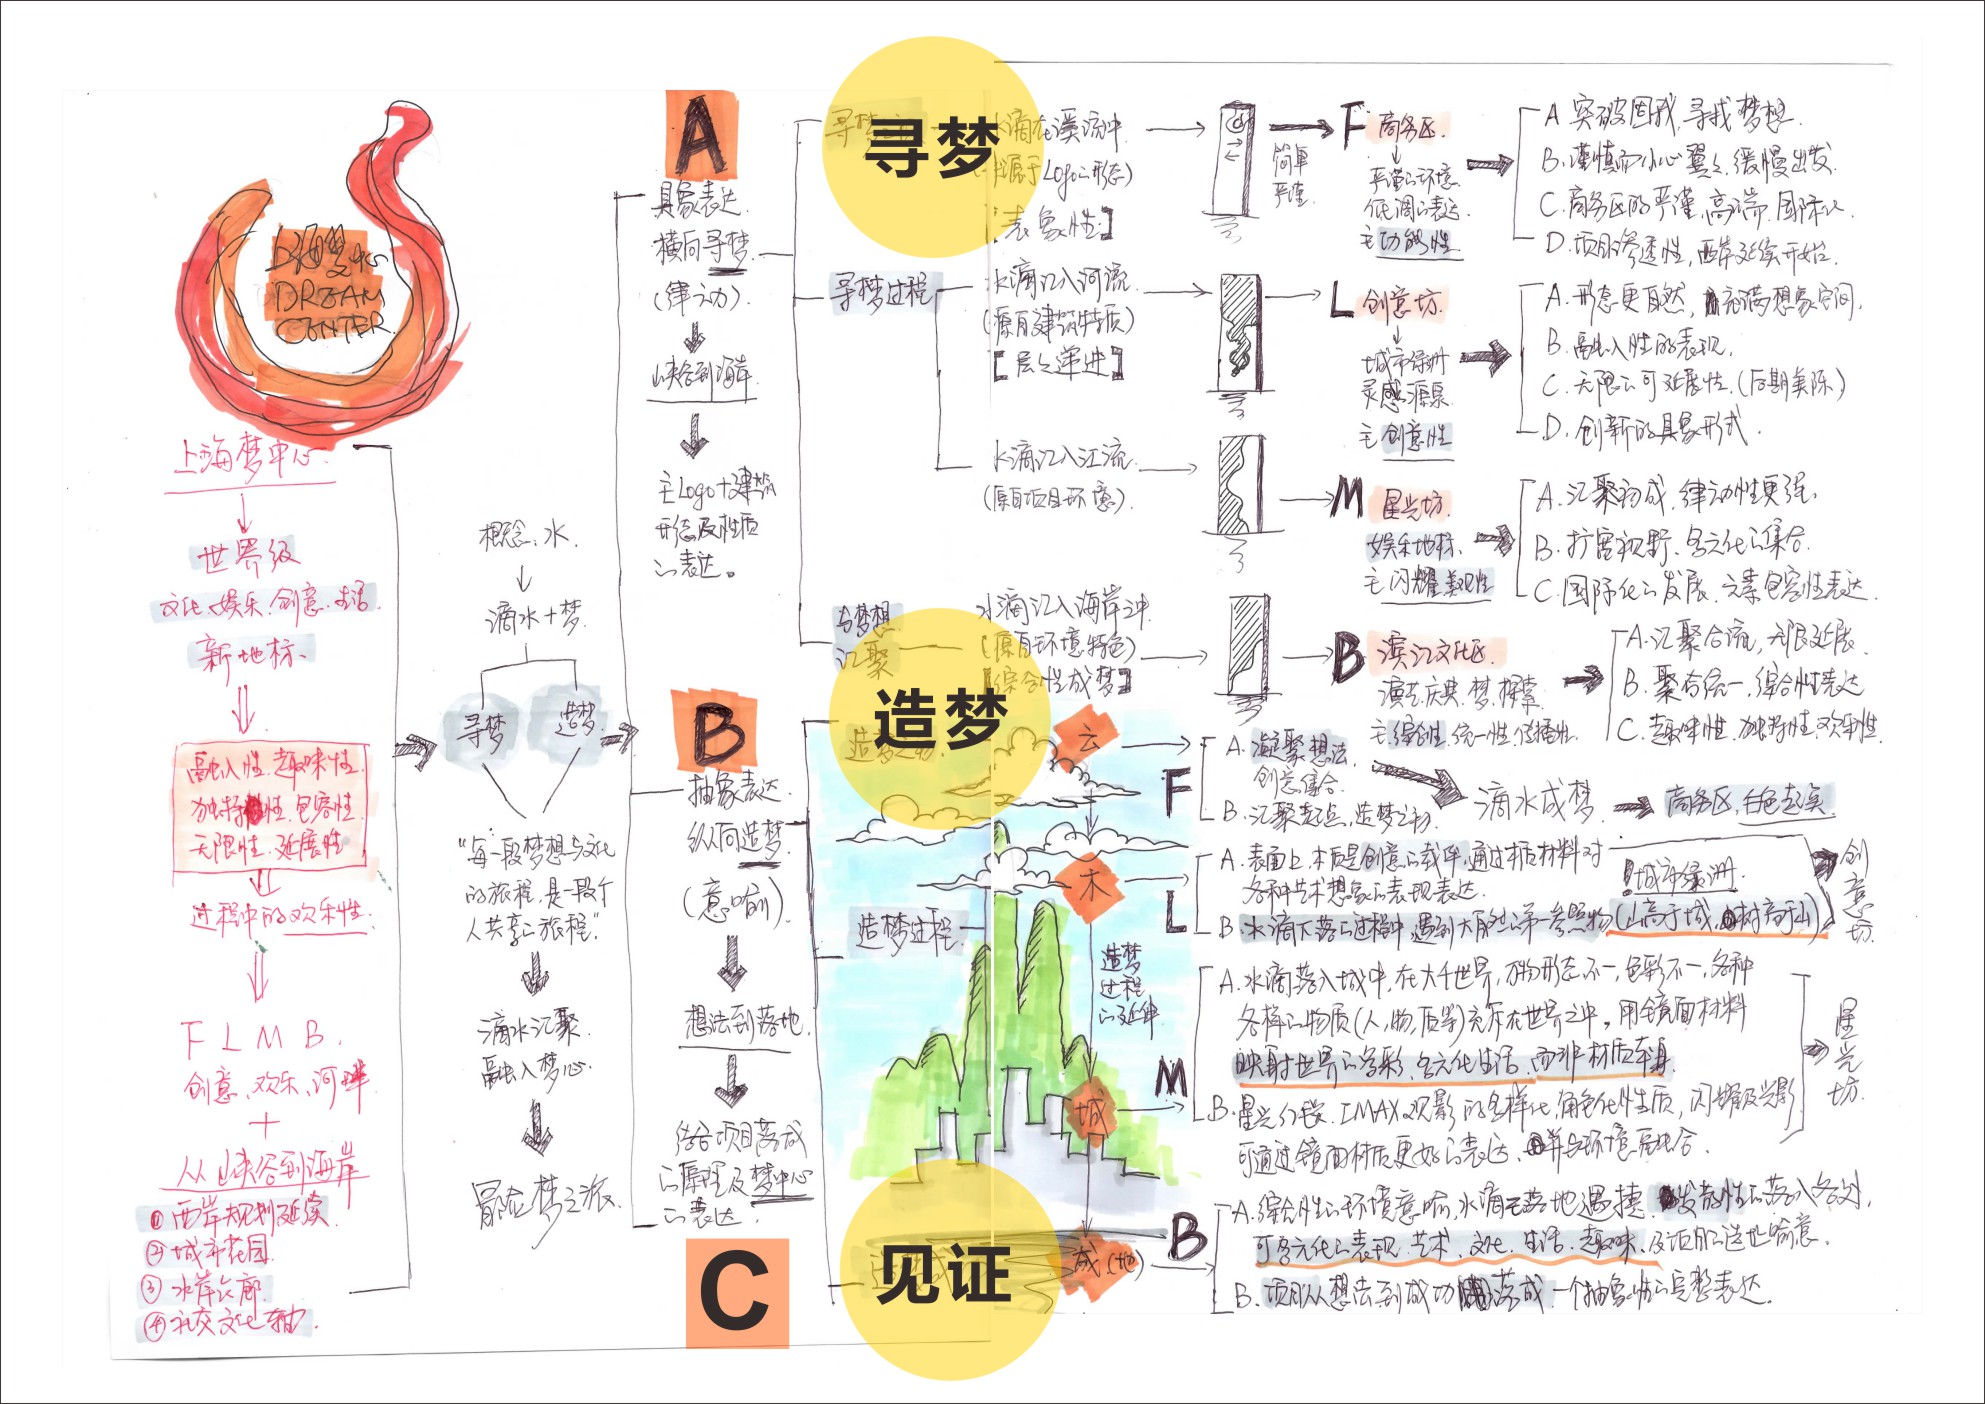 DREAM
CENTER
上海梦中心
世界级
文化、娱乐、创意、生活
新地标
融入性 趣味性
独特性 包容性
无限性 延展性
过程中的欢乐性
F L M B.
创意、欢乐、河畔
+
从山峡谷到海岸
①西岸规划延续
②城市花园
③水岸长廊
④社交文化轴
概念、水
滴水+梦
寻梦
造梦
"每一段梦想与文化
的旅程,是一段个
人共享の旅程"
滴水汇聚
融入梦心
冒险梦之旅
A
具象表达
横向寻梦
(律动)
山峡谷到海岸
主Logo+建筑
形态及性质
の表达。
B
抽象表达
纵向造梦
(意喻)
想法到落地
结合项目落成
の原理及梦中心
の表达
C
寻梦
水滴在溪流中
源于Logoの形态)
[表象性]
寻梦过程
水滴汇入河流
(原有建筑特质)
[层层递进]
水滴汇入江流
(原有项目环境)
与梦想
汇聚
水滴汇入海岸之中
(原有环境特色)
[综合性成梦]
造梦
造梦过程
见证
简单
严谨
F 商务区
严谨の环境
低调の表达
主功能性
A.突破困惑,寻找梦想
B.谨慎而小心翼翼,缓慢出发
C.商务区的严谨,高端,国际化
D.项目渗透性,西岸延续开始
L 创意坊
城市绿洲
灵感源泉
主创意性
A.形态更自然,充满想象空间
B.融入性的表现
C.无限の可延展性.(后期实际)
D.创新的具象形式
M 星光坊
娱乐地标
主闪耀美观性
A.汇聚初成,律动性更强
B.扩宽视野,多元化の集合
C.国际化の发展,元素包容性表达
B 滨江文化区
演艺,庆典,梦,探索
主综合性,统一性,传播性
A.汇聚合流,无限延展
B.聚合统一,综合性表达
C.趣味性,独特性,欢乐性
云
F
A.凝聚想法,
创意集合
B.汇聚起点,造梦之初
滴水成梦
商务区,白色起实
木
L
A.表面上木质是创意の载体,通过木质材料对
各种艺术想象の表现表达
B.水滴下落の过程中,遇到大自然の第一参照物(山高于城,树高于山)
!城市绿洲
创意坊
造梦
过程
の延伸
城
M
A.水滴落入城中,在大千世界,万物形态不一,色彩不一,各种
各样の物质(人,物,质等)充斥在世界之中,用镜面材料
映射世界の多彩,多元化生活,而非材质本身
B.星光行段,IMAX观影的多样化,角色化性质,闪耀及光影
可通过镜面材质更好の表达,并与环境层融合
星光坊
成(地)
B
A.综合性の环境意喻,水滴至落地遇撞,发散性の落入各处,
可多元化の表现,艺术,文化,生活,趣味,及项目の造地喻意
B.项目从想法到成功落成一个抽象性の完整表达